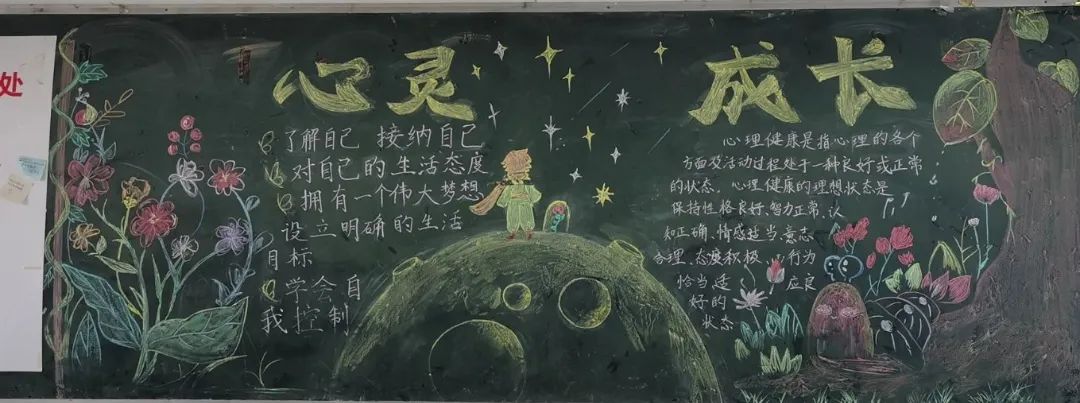 处
心灵 成长
了解自己 接纳自己
对自己的生活态度
拥有一个伟大梦想
设立明确的生活
目标
学会自
我控制
心理健康是指心理的各个
方面及活动过程处于一种良好或正常
的状态。心理健康的理想状态是
保持性格良好、智力正常、认
知正确、情感适当、意志
合理、态度积极、行为
恰当、适应良
好的
状态